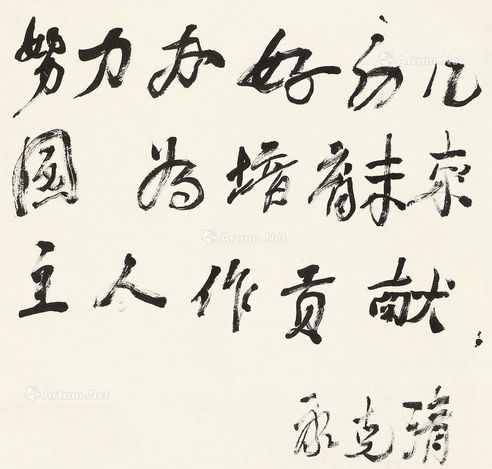 努力办好幼儿
Artron.Net
園 为培育未来
Artron.Net
主人作贡献.
Artron.Net
康克清
Artron.Net